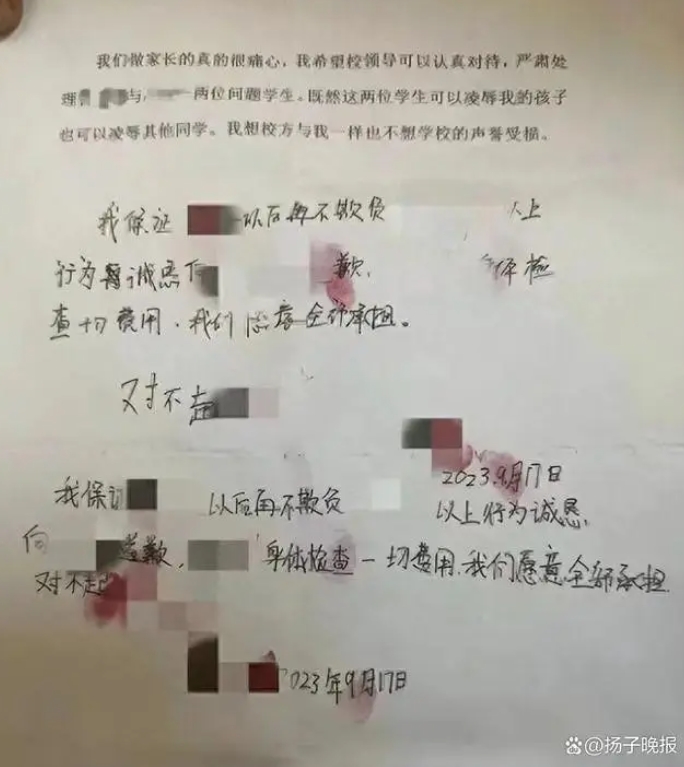 我们做家长的真的很痛心，我希望校领导可以认真对待，严肃处
理 与 两位问题学生。既然这两位学生可以凌辱我的孩子
也可以凌辱其他同学。我想校方与我一样也不想学校的声誉受损。
我保证 以后再不欺负 以上
行为 诚恳向 歉， 体检
查一切费用，我们愿意全部承担。
对不起
2023.9月17日
我保证 以后再不欺负 以上行为诚恳
向 道歉， 身体检查一切费用，我们愿意全部承担
对不起
2023年9月17日
@扬子晚报